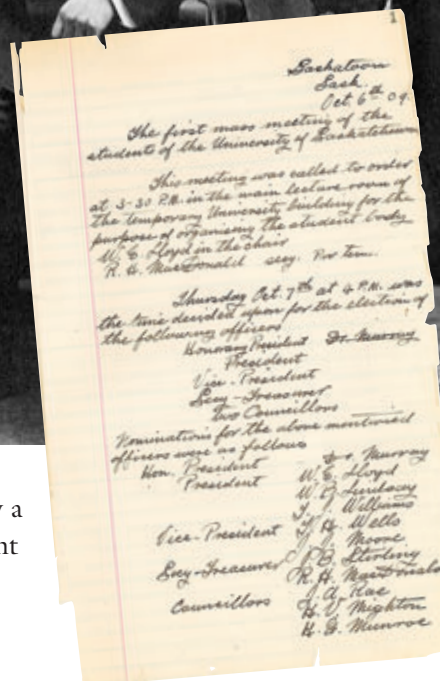 1
Saskatoon
Sask.
Oct. 6th 09.
The first mass meeting of the
students of the University of Saskatchewan
This meeting was called to order
at 3-30 P.M. in the main lecture room of
the temporary University building for the
purpose of organising the student body
W. E. Lloyd in the chair
R. H. MacDonald secy. Pro tem.
Thursday Oct. 7th at 4 P.M. was
the time decided upon for the election of
the following officers
Honorary President Dr. Murray
President
Vice-President
Secy-Treasurer
Two Councillors
Nominations for the above mentioned
officers were as follows
Hon. President Dr. Murray
President W. E. Lloyd
W. B.
T. J. Williams
Vice-President H. Wells
J. Moore
Secy-Treasurer B. Stirling
R. H. MacDonald
Councillors J. A. Rae
H. V. Mighton
H. G. Munroe
y a
nt